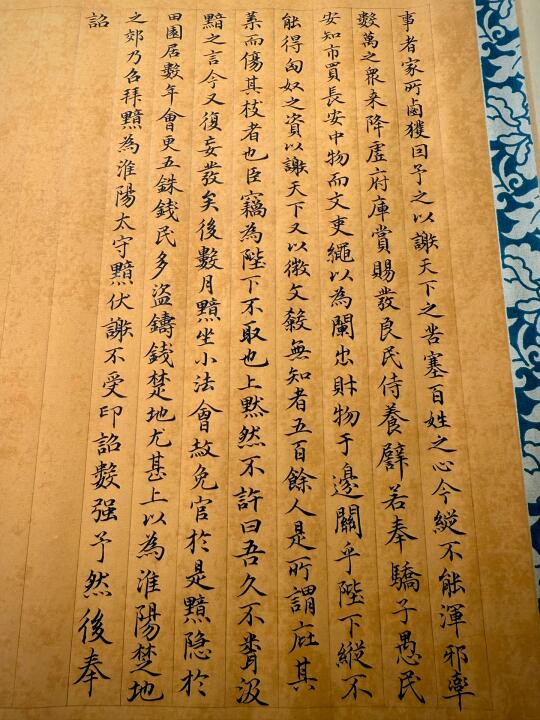 事者家所鹵獲因予之以謝天下之苦塞百姓之心今縱不能渾邪率
數萬之衆来降虛府庫賞賜發良民侍養譬若奉驕子愚民
安知市買長安中物而文吏繩以為闌出財物于邊關乎陛下縱不
能得匈奴之資以謝天下又以微文殺無知者五百餘人是所謂庇其
葉而傷其枝者也臣竊為陛下不取也上默然不許曰吾久不聞汲
黯之言今又復妄發矣後數月黯坐小法會赦免官於是黯隐於
田園居數年會更五銖錢民多盜鑄錢楚地尤甚上以為淮陽楚地
之郊乃召拜黯為淮陽太守黯伏謝不受印詔數强予然後奉
詔